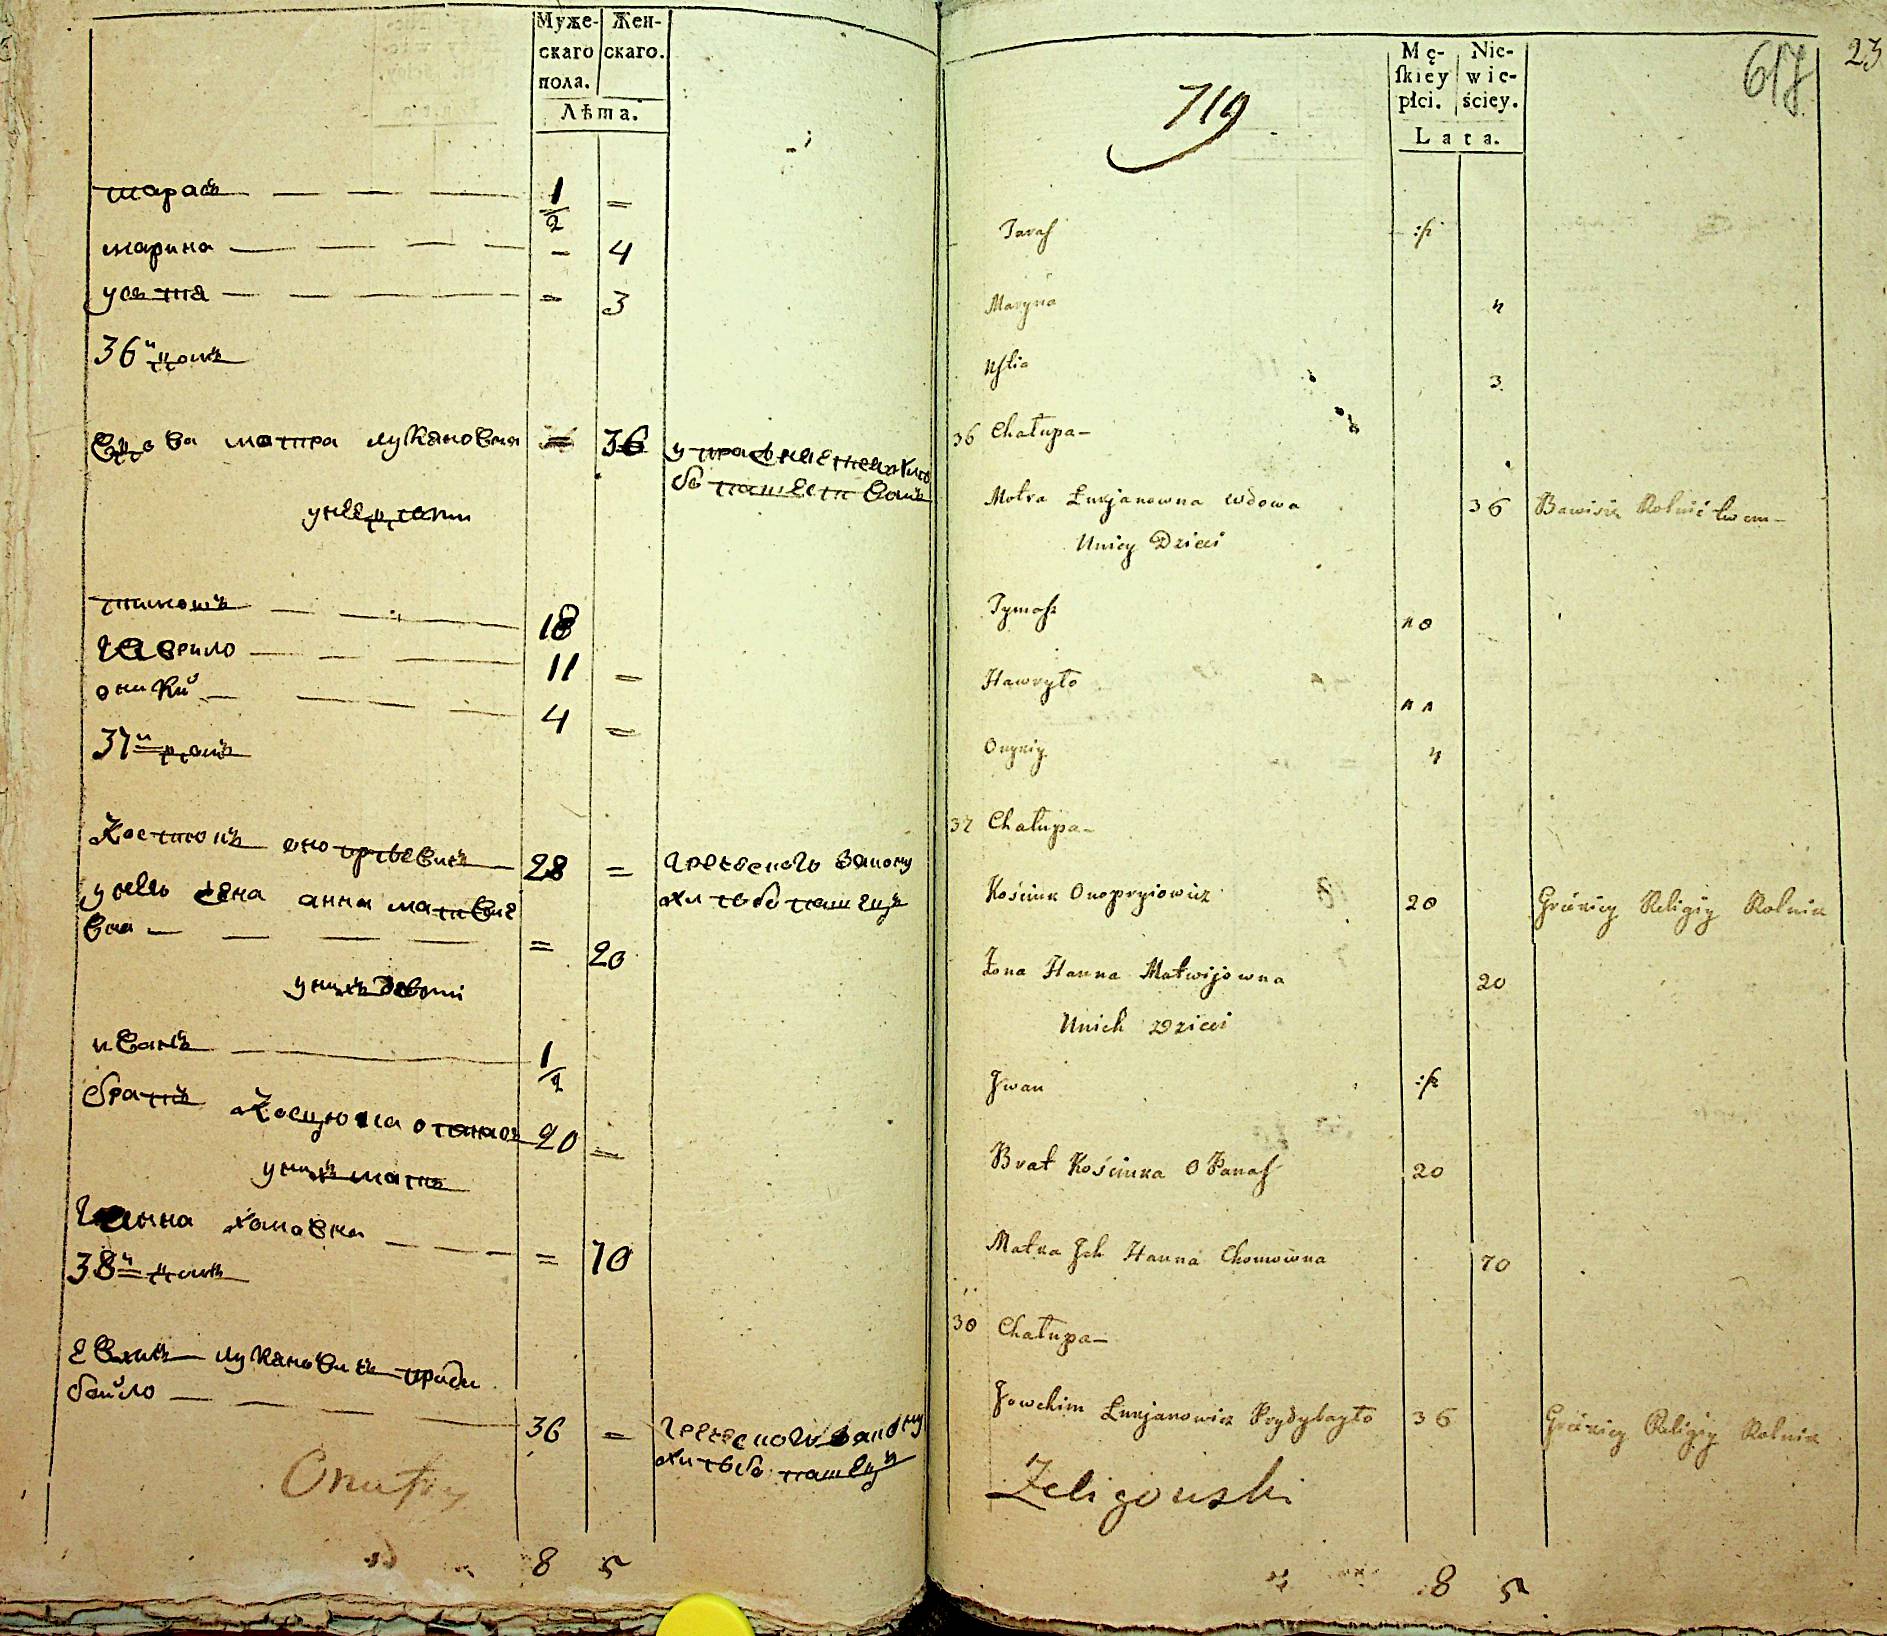 Муже-
скаго
пола.
Жен-
скаго.
Лѣта.
тарасъ 1/2 =
марина - 4
устиа = 3
36й домъ
Вдова мотра лукяновна = 36
у неи дети
тимошъ 18
гаврило 11 =
оникий 4 =
37й домъ
Костюкъ оноприевичъ 28 = греческого закону
хлебопашецъ
у него жена анна матвие
вна = 20
у нихъ дети
иванъ 1/2
братъ Косцюка опанасъ 20 =
у нихъ матъ
Ганна хомовна = 70
38й домъ
Евхимъ лукяновичъ приди
байло 36 = греческого закону
хлебопашецъ
Onufry
8 5
719
617
23
Mę-
ſkiey
płci.
Nie-
wie-
ściey.
Lata.
Taraſ :/2
Maryna 4
Uſtia 3
36 Chałupa
Motra Łukjanowna Wdowa 36 Bawisię Rolnictwem
Unicy Dzieci
Tymoſz 18
Hawryło 11
Onykiy 4
37 Chałupa
Kościuk Onopryiowicz 28 Gréckiey Religiy Rolnik
Żona Hanna Matwijowna 20
Unich Dzieci
Jwan :/2
Brat Kościuka OPanaſ 20
Matka Jch Hanna Chomowna 70
38 Chałupa
Jowchim Łukjanowicz Prydybayło 36 Gréckiey Religiy Rolnik
Zeligowski
8 5